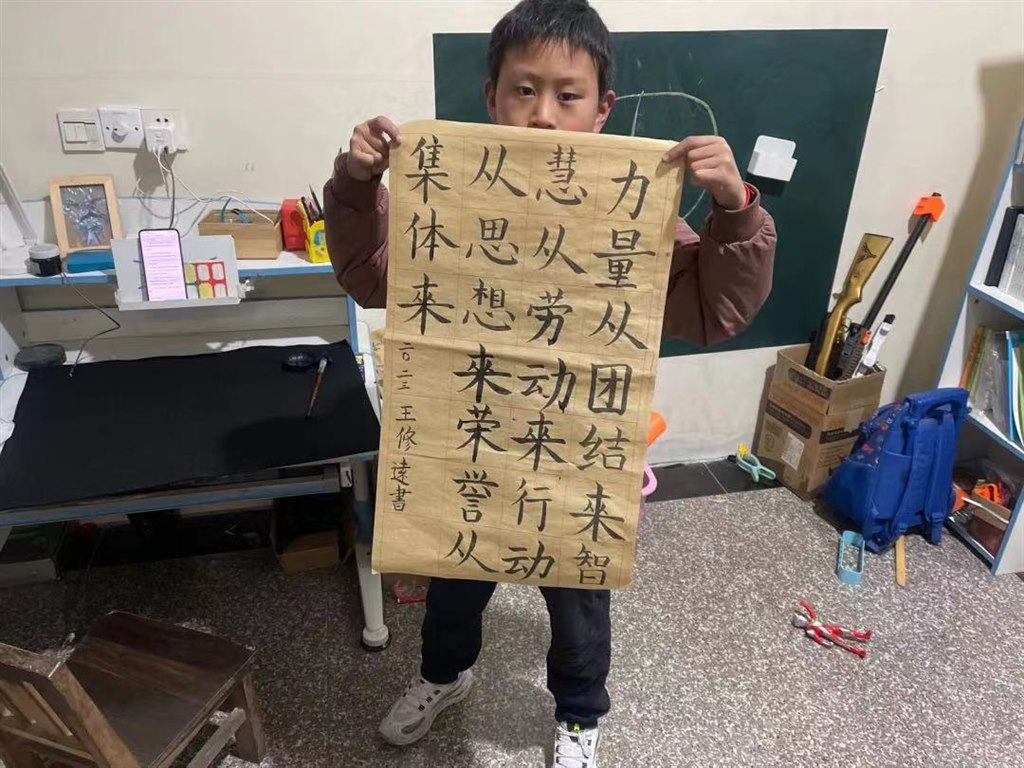 力量从团结来智
慧从劳动来行动
从思想来荣誉从
集体来
二〇二三 王修逵書